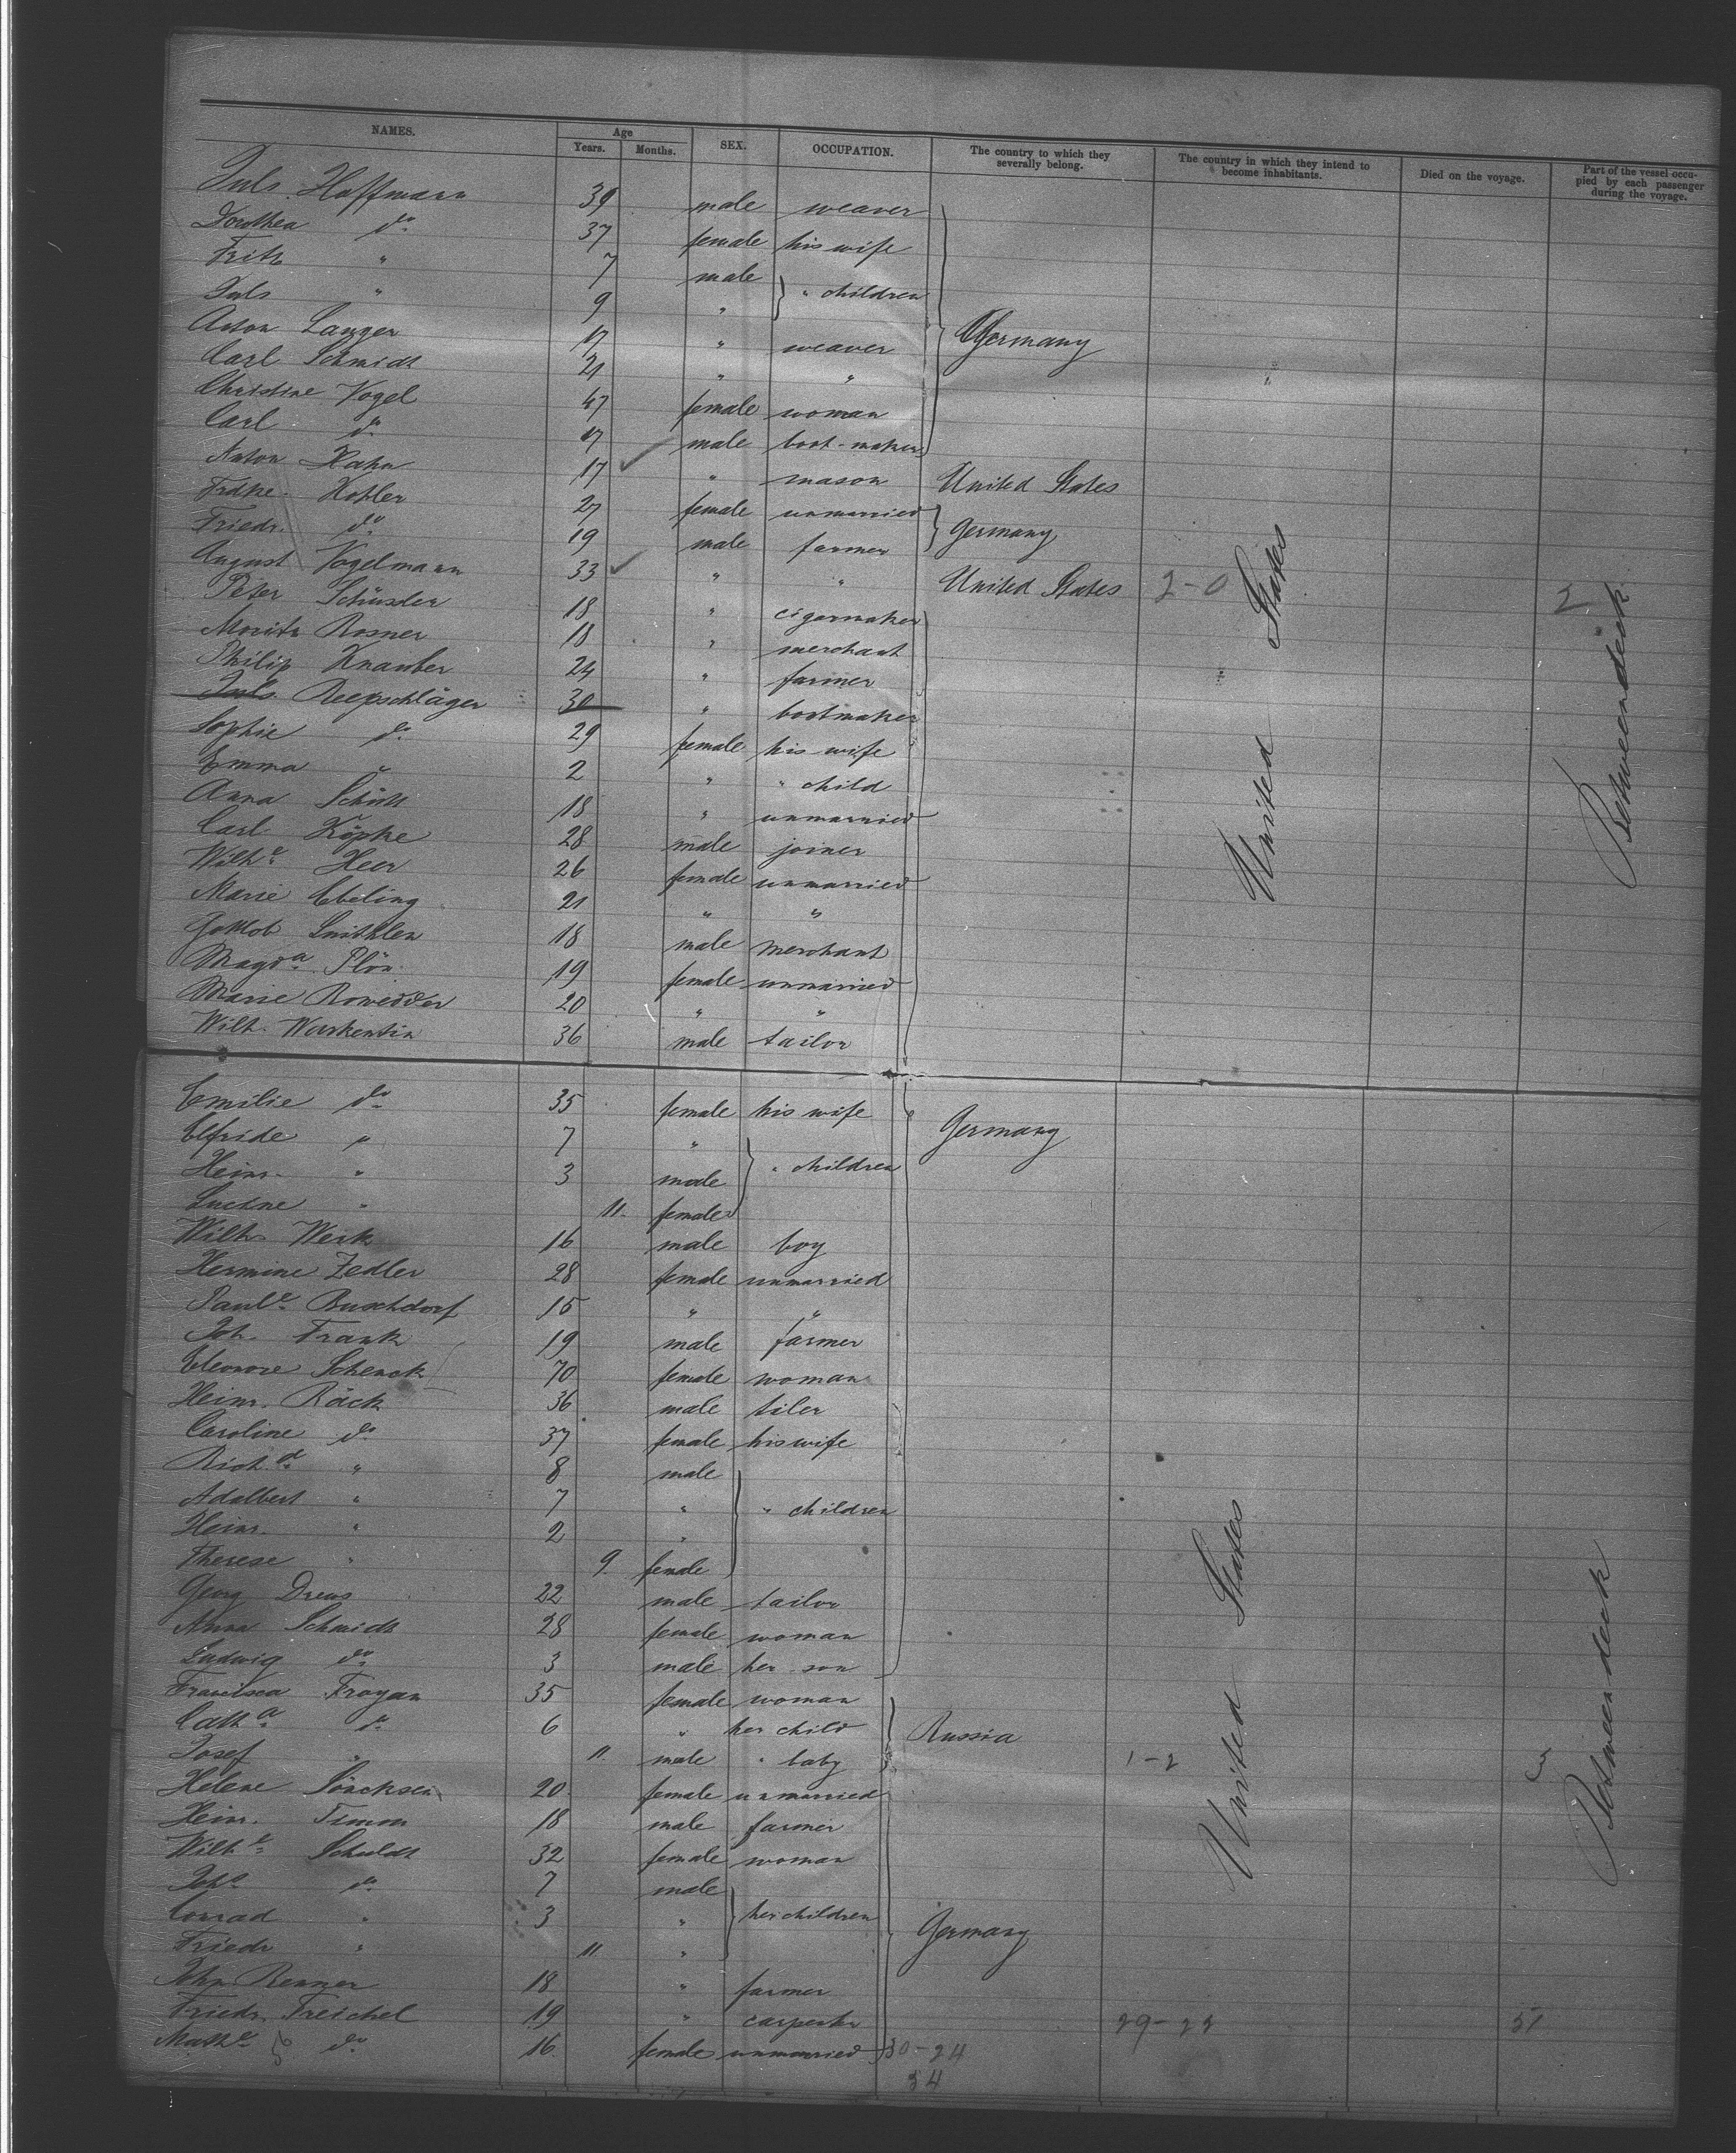 NAMES. Age SEX. OCCUPATION. The country to which they severally belong. The country in which they intend to become inhabitants. Died on the voyage. Part of the vessel occupied by each passenger during the voyage.
Years. Months.
Juls. Hoffmann 39 male weaver
Dorothea do 37 female his wife
Fritz " 7 male
Juls " 9 " " children
Anton Langer 17 " weaver Germany
Carl Schmidt 21 " "
Christine Vogel 47 female woman
Carl do 17 male boot-maker
Anton Hahn 17 " mason United States
Frdke. Kohler 27 female unmarried
Friedr. do 19 male farmer Germany
August Vogelmann 33 " " United States 2-0 2
Peter Schüssler 18 " cigarmaker
Moritz Rosner 18 " merchant
Philip Knauber 24 " farmer
Juls. Reepschläger 30 " bootmaker
Sophie do 29 female his wife
Emma " 2 " " child
Anna Schütt 18 " unmarried
Carl Köpke 28 male joiner
Wilhe Heer 26 female unmarried
Marie Ebeling 21 " "
Gottlob 18 male merchant
Magda Plön 19 female unmarried
Marie Rowedder 20 " "
Wilh. Warkentin 36 male tailor
United States
Betweendeck
Emilie do 35 female his wife Germany
Elfride " 7 "
Heinr. " 3 male " children
" 11. female
Wilh. Weik 16 male boy
Hermine Zedler 28 female unmarried
Paule Buschdorf 15 " "
Joh. Frank 19 male farmer
Eleonore Schenck 70 female woman
Heinr. Räck 36 male tiler
Caroline do 37 female his wife
Richd " 8 male
Adalbert " 7 " " children
Heinr. " 2 "
Therese " 9. female
Georg Drews 22 male tailor
Anna Schmidt 28 female woman
Ludwig do 3 male her son
Francisca Froyan 35 female woman
Catha do 6 " her child Russia
Josef " 11. male " baby 1-2 3
Helene Söncksen 20 female unmarried
Heinr. Timm 18 male farmer
Wilhe Schuldt 32 female woman
Joha do 7 male
Conrad " 3 " her children
Friedr " 11. " Germany
John Renner 18 " farmer
Friedr. Treichel 19 " carpenter 29-22 51
Mathe do 16 female unmarried 30-24
34
United States
Betweendeck